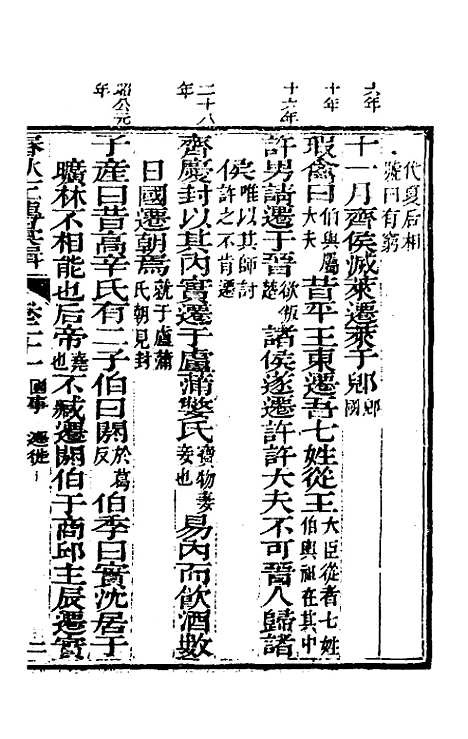 六年
十年
十六年
二十八年
昭公元年
代夏后相號曰有窮
十一月齊侯滅萊遷萊于郳郳國
瑕禽曰伯輿屬大夫昔平王東遷吾七姓從王大臣從者七姓伯輿祖在其中
許男請遷于晉欲叛楚諸侯遂遷許許大夫不可晉人歸諸
侯唯以其師討許之不肯遷
齊慶封以其內實遷于盧蒲嫳氏寶物妻妾也易內而飲酒數
日國遷朝焉就于盧蒲氏朝見封
子產曰昔高辛氏有二子伯曰閼於葛反伯季曰實沈居于
曠林不相能也后帝堯也不臧遷閼伯于商邱主辰遷實
卷二十一 國事 遷徙 二